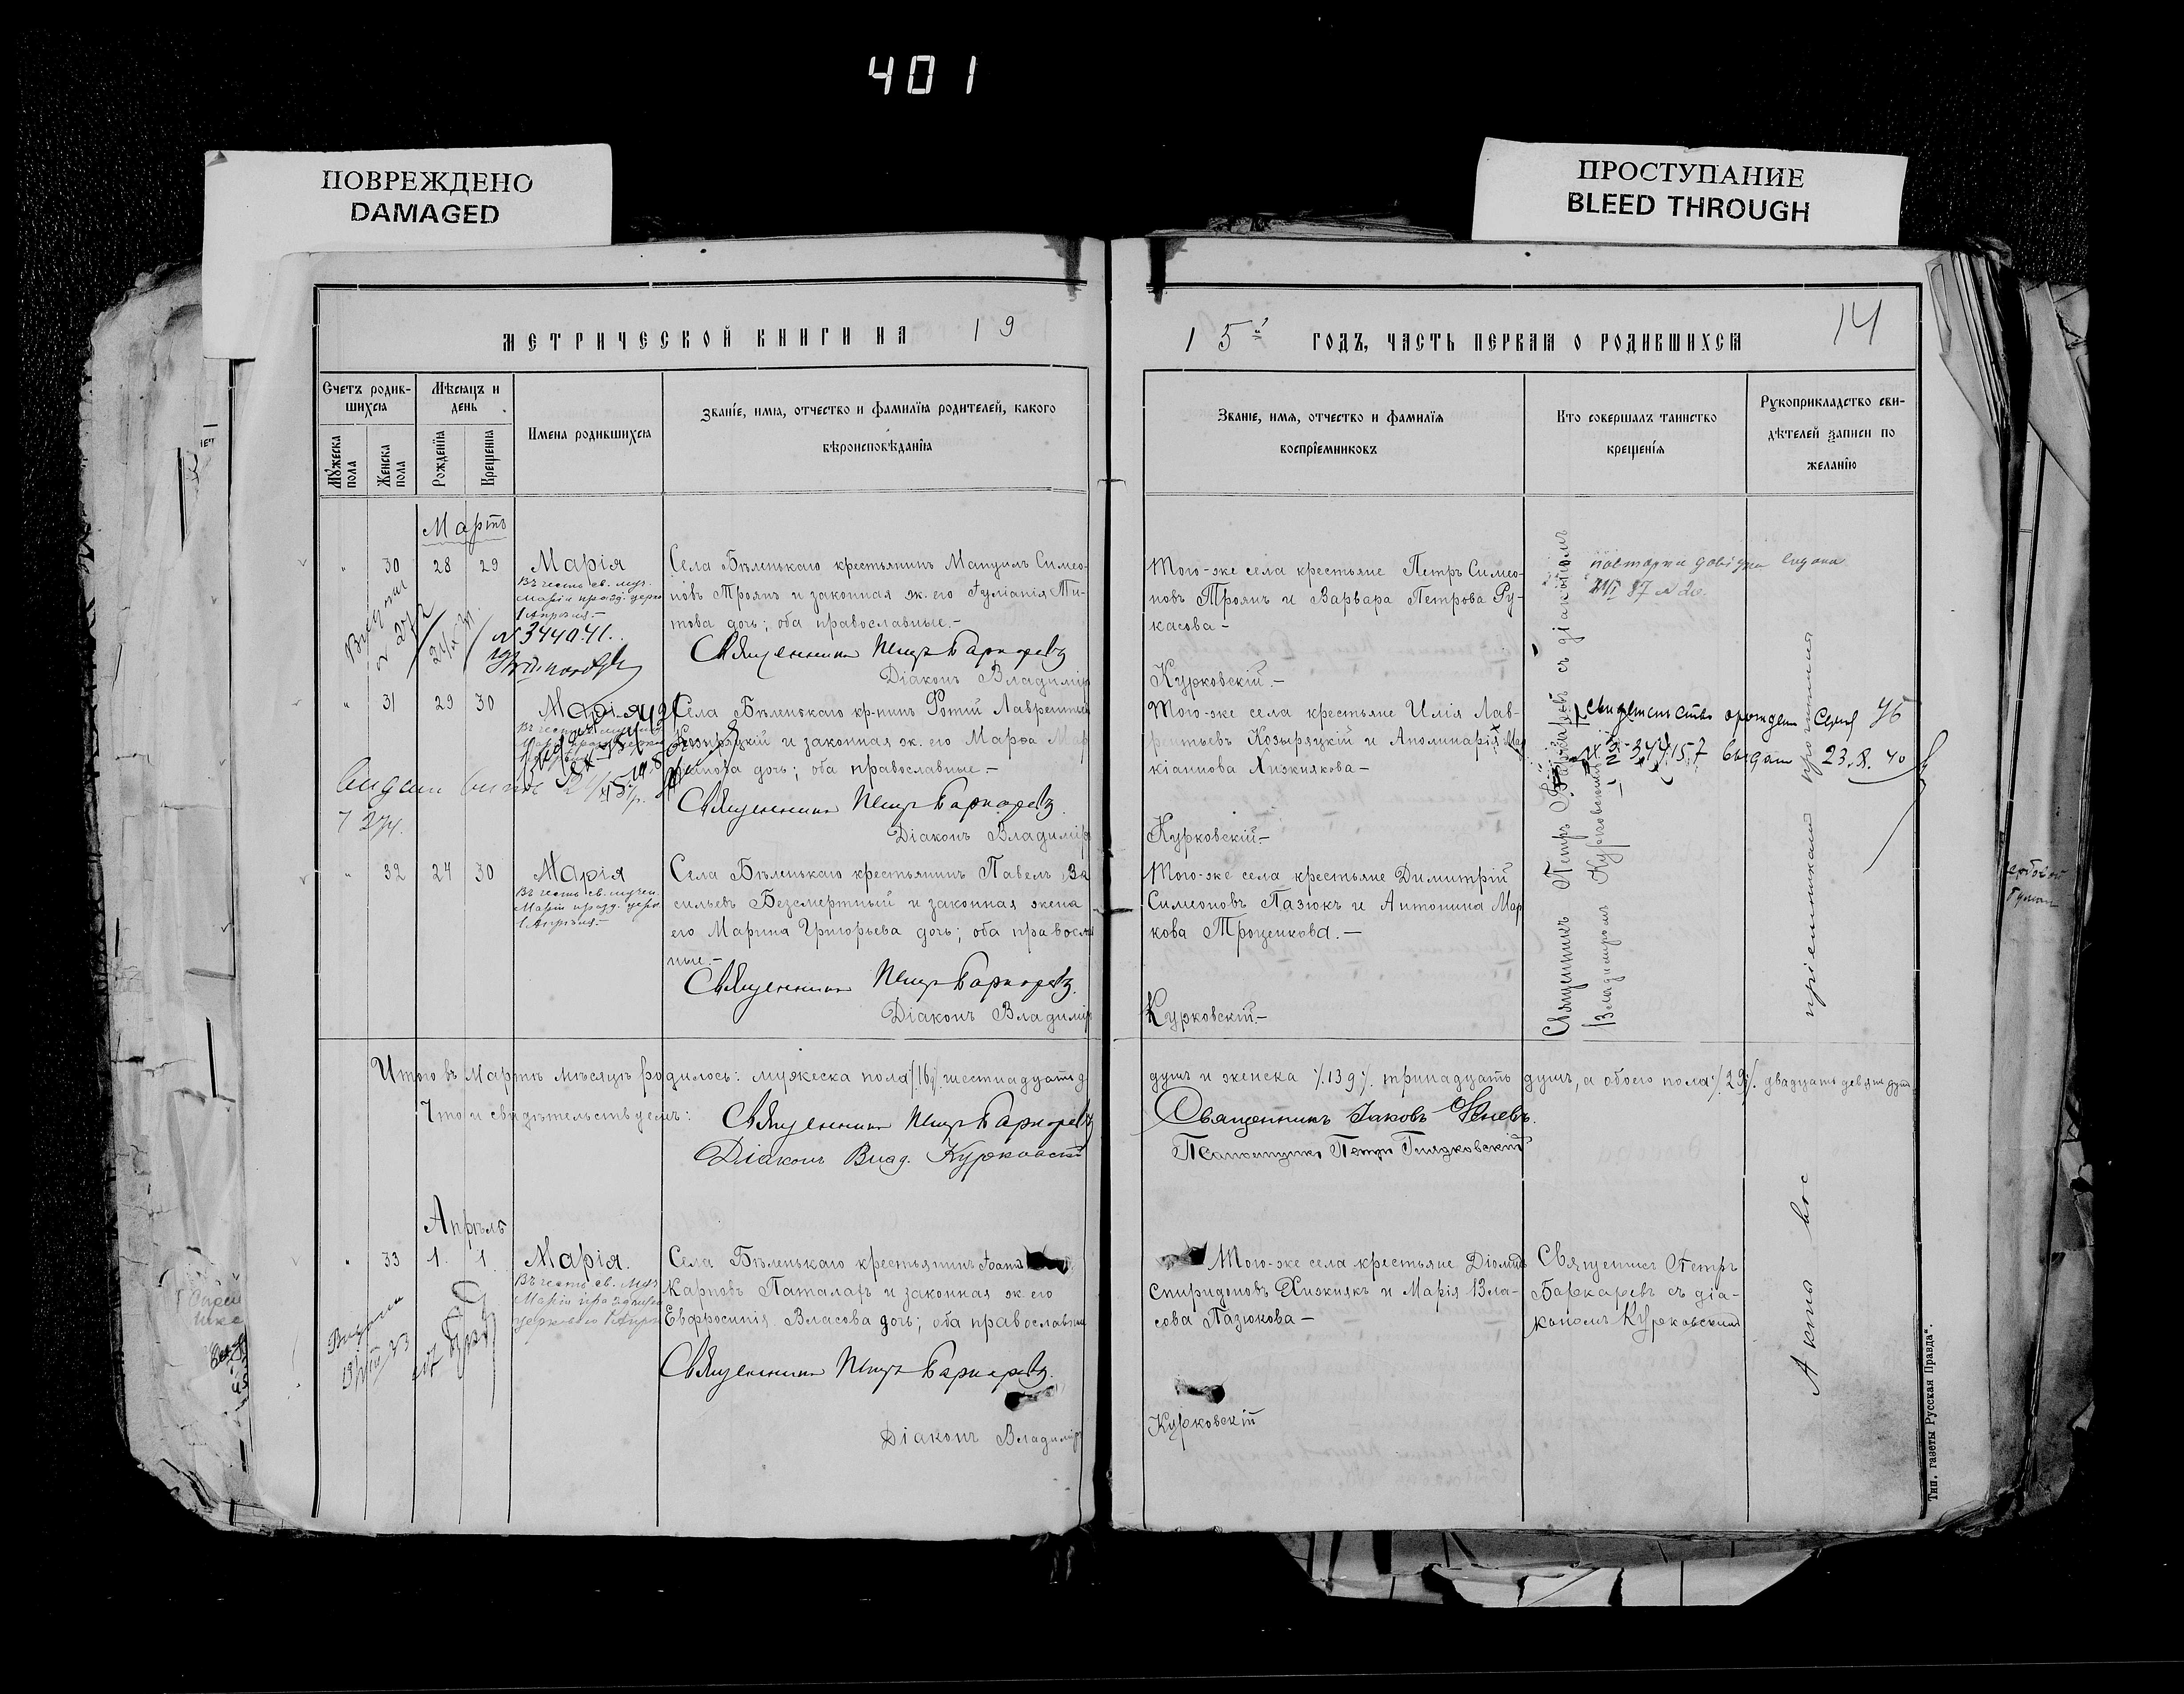 401
ПОВРЕЖДЕНО
DAMAGED
ПРОСТУПАНИЕ
BLEED THROUGH
МЕТРИЧЕСКОЙ КНИГИ НА 19
Счетъ родив-
шихся
Мѣсяцъ и
день
Мужеска
пола
Женска
пола
Рожденія
Крещенія
Имена родившихся
Званіе, имя, отчество и фамилія родителей, какого
вѣроисповѣданія
Мартъ
30 28 29 Марія
Въ честь св. муч.
Маріи празд. церк.
1 Апрѣля.-
Села Бѣленькаго крестьянинъ Мануилъ Симео-
новъ Троянъ и законная ж. его Іуліанія Ти-
това дочь; оба православные.-
№ 344041.
Священникъ Петръ Баркаревъ
Діаконъ Владиміръ
31 29 30 Марія
Села Бѣленькаго кр-нинъ Фотій Лаврентьевъ
Козыряцкій и законная ж. его Марѳа Мар
дочь; оба православные.-
Священникъ Петръ Баркаревъ.
Діаконъ Владиміръ
32 24 30 Марія
Въ честь св. мучен.
Маріи празд. церк.
1 Апрѣля.-
Села Бѣленькаго крестьянинъ Павелъ Ва
сильевъ Безсмертный и законная жена
его Марина Григорьева дочь; оба православ
ные.-
Священникъ Петръ Баркаревъ.
Діаконъ Владиміръ
Итого въ Мартѣ мѣсяцѣ родилось: мужеска пола /16/ шестнадцать д
Что и свидѣтельствуемъ:
Священникъ Петръ Баркаревъ
Діаконъ Влад. Курковскій
Апрѣль
33 1. 1. Марія.
Въ честь св. муч
Маріи празднуем
церковью 1 Апрѣ
Села Бѣленькаго крестьянинъ Іоаннъ
Карповъ Паталахъ и законная ж. его
Евфросинія Власова дочь; оба православные
Священникъ Петръ Баркаревъ.
Діаконъ Владиміръ
15й ГОДЪ, ЧАСТЬ ПЕРВАЯ О РОДИВШИХСЯ
14
Званіе, имя, отчество и фамилія
воспріемниковъ
Кто совершалъ таинство
крещенія
Рукоприкладство сви-
дѣтелей записи по
желанію
Того-же села крестьяне Петръ Симео-
новъ Троянъ и Варвара Петрова Ру-
касова-
Курковскій.-
повторна довідка видана
Того-же села крестьяне Илія Лав-
рентьевъ Козыряцкій и Аполинарія Мар
кіанова Хижнякова-
Курковскій.-
№ 344157 выдан 23.8.40
Того-же села крестьяне Димитрій
Симеоновъ Пазюкъ и Антонина Мар
кова Троценкова.-
Курковскій.-
Священникъ Петръ Баркаревъ съ діакономъ
Владиміромъ Курковскимъ
душъ и женска /.13 д/. тринадцать душъ, а обоего пола /.29/. двадцать девять душъ
Священникъ Іаковъ
Псаломщикъ Петръ
Того-же села крестьяне Діомидъ
Спиридоновъ Хижнякъ и Марія Вла-
сова Пазюкова-
Курковскій
Священникъ Петръ
Баркаревъ съ діа-
кономъ Курковскимъ
Тип. газеты „Русская Правда“.